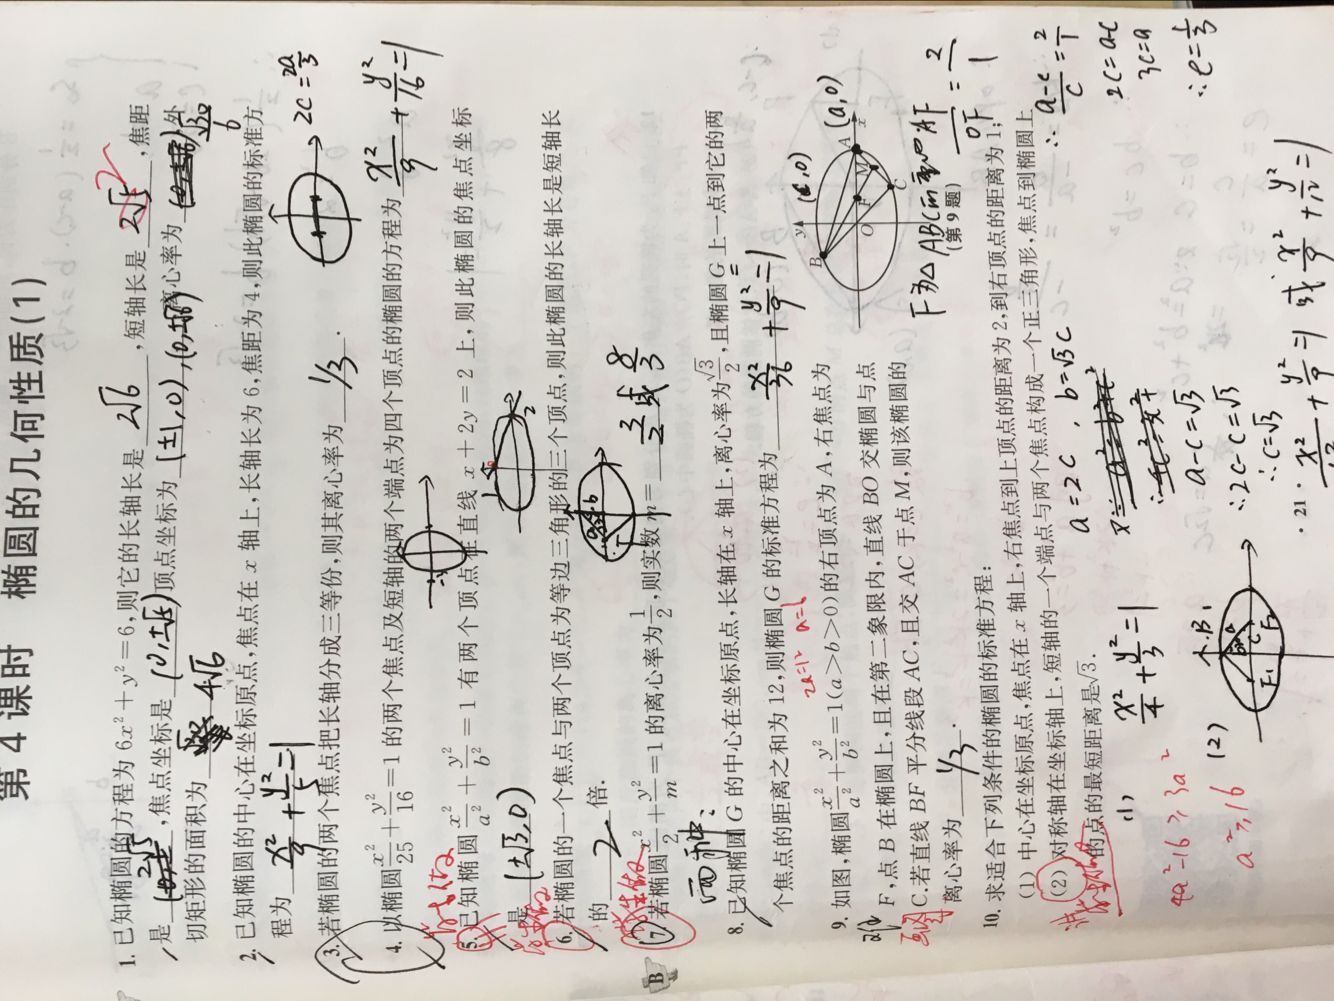 第 4 课时 椭圆的几何性质(1)
1. 已知椭圆的方程为 6x²+y²=6,则它的长轴长是 2√6 ,短轴长是 ,焦距
是 ,焦点坐标是 (0,±√5) 顶点坐标为 (±1,0),(0,±√6) 离心率为 √30/6 外
切矩形的面积为 4√6
2. 已知椭圆的中心在坐标原点,焦点在 x 轴上,长轴长为 6,焦距为 4,则此椭圆的标准方
程为 x²/9+y²/5=1
2c=2a/3
3. 若椭圆的两个焦点把长轴分成三等份,则其离心率为 1/3 .
4. 以椭圆x²/25+y²/16=1 的两个焦点及短轴的两个端点为四个顶点的椭圆的方程为 x²/9+y²/16=1
5. 已知椭圆x²/a²+y²/b²=1 有两个顶点在直线 x+2y=2 上,则此椭圆的焦点坐标
是 (±√3,0)
6. 若椭圆的一个焦点与两个顶点为等边三角形的三个顶点,则此椭圆的长轴长是短轴长
的 2 倍.
B
7. 若椭圆x²/2+y²/m=1 的离心率为1/2,则实数 m= 3/2 或 8/3
两种:
8. 已知椭圆 G 的中心在坐标原点,长轴在 x 轴上,离心率为√3/2,且椭圆 G 上一点到它的两
个焦点的距离之和为 12,则椭圆 G 的标准方程为 x²/36+y²/9=1
2a=12 a=6
9. 如图,椭圆x²/a²+y²/b²=1(a>b>0)的右顶点为 A,右焦点为
F,点 B 在椭圆上,且在第二象限内,直线 BO 交椭圆与点
C.若直线 BF 平分线段 AC,且交 AC 于点 M,则该椭圆的
离心率为 1/3 .
y
B
A
x
M
F
O
C
(a,0)
(c,0)
(第 9 题)
F为△ABC
AF/OF=2/1
∴ a-c/c=2/1
2c=a-c
3c=a
∴e=1/3
10. 求适合下列条件的椭圆的标准方程:
(1) 中心在坐标原点,焦点在 x 轴上,右焦点到上顶点的距离为 2,到右顶点的距离为 1;
(2) 对称轴在坐标轴上,短轴的一个端点与两个焦点构成一个正三角形,焦点到椭圆上
的点的最短距离是√3.
(1) x²/4+y²/3=1
(2)
B
F₁
F₂
a=2c, b=√3c
a-c=√3
∴2c-c=√3
∴c=√3
x²/12+y²/9=1 或 x²/9+y²/12=1
4a²-16≥3a²
a²≥16
· 21 ·